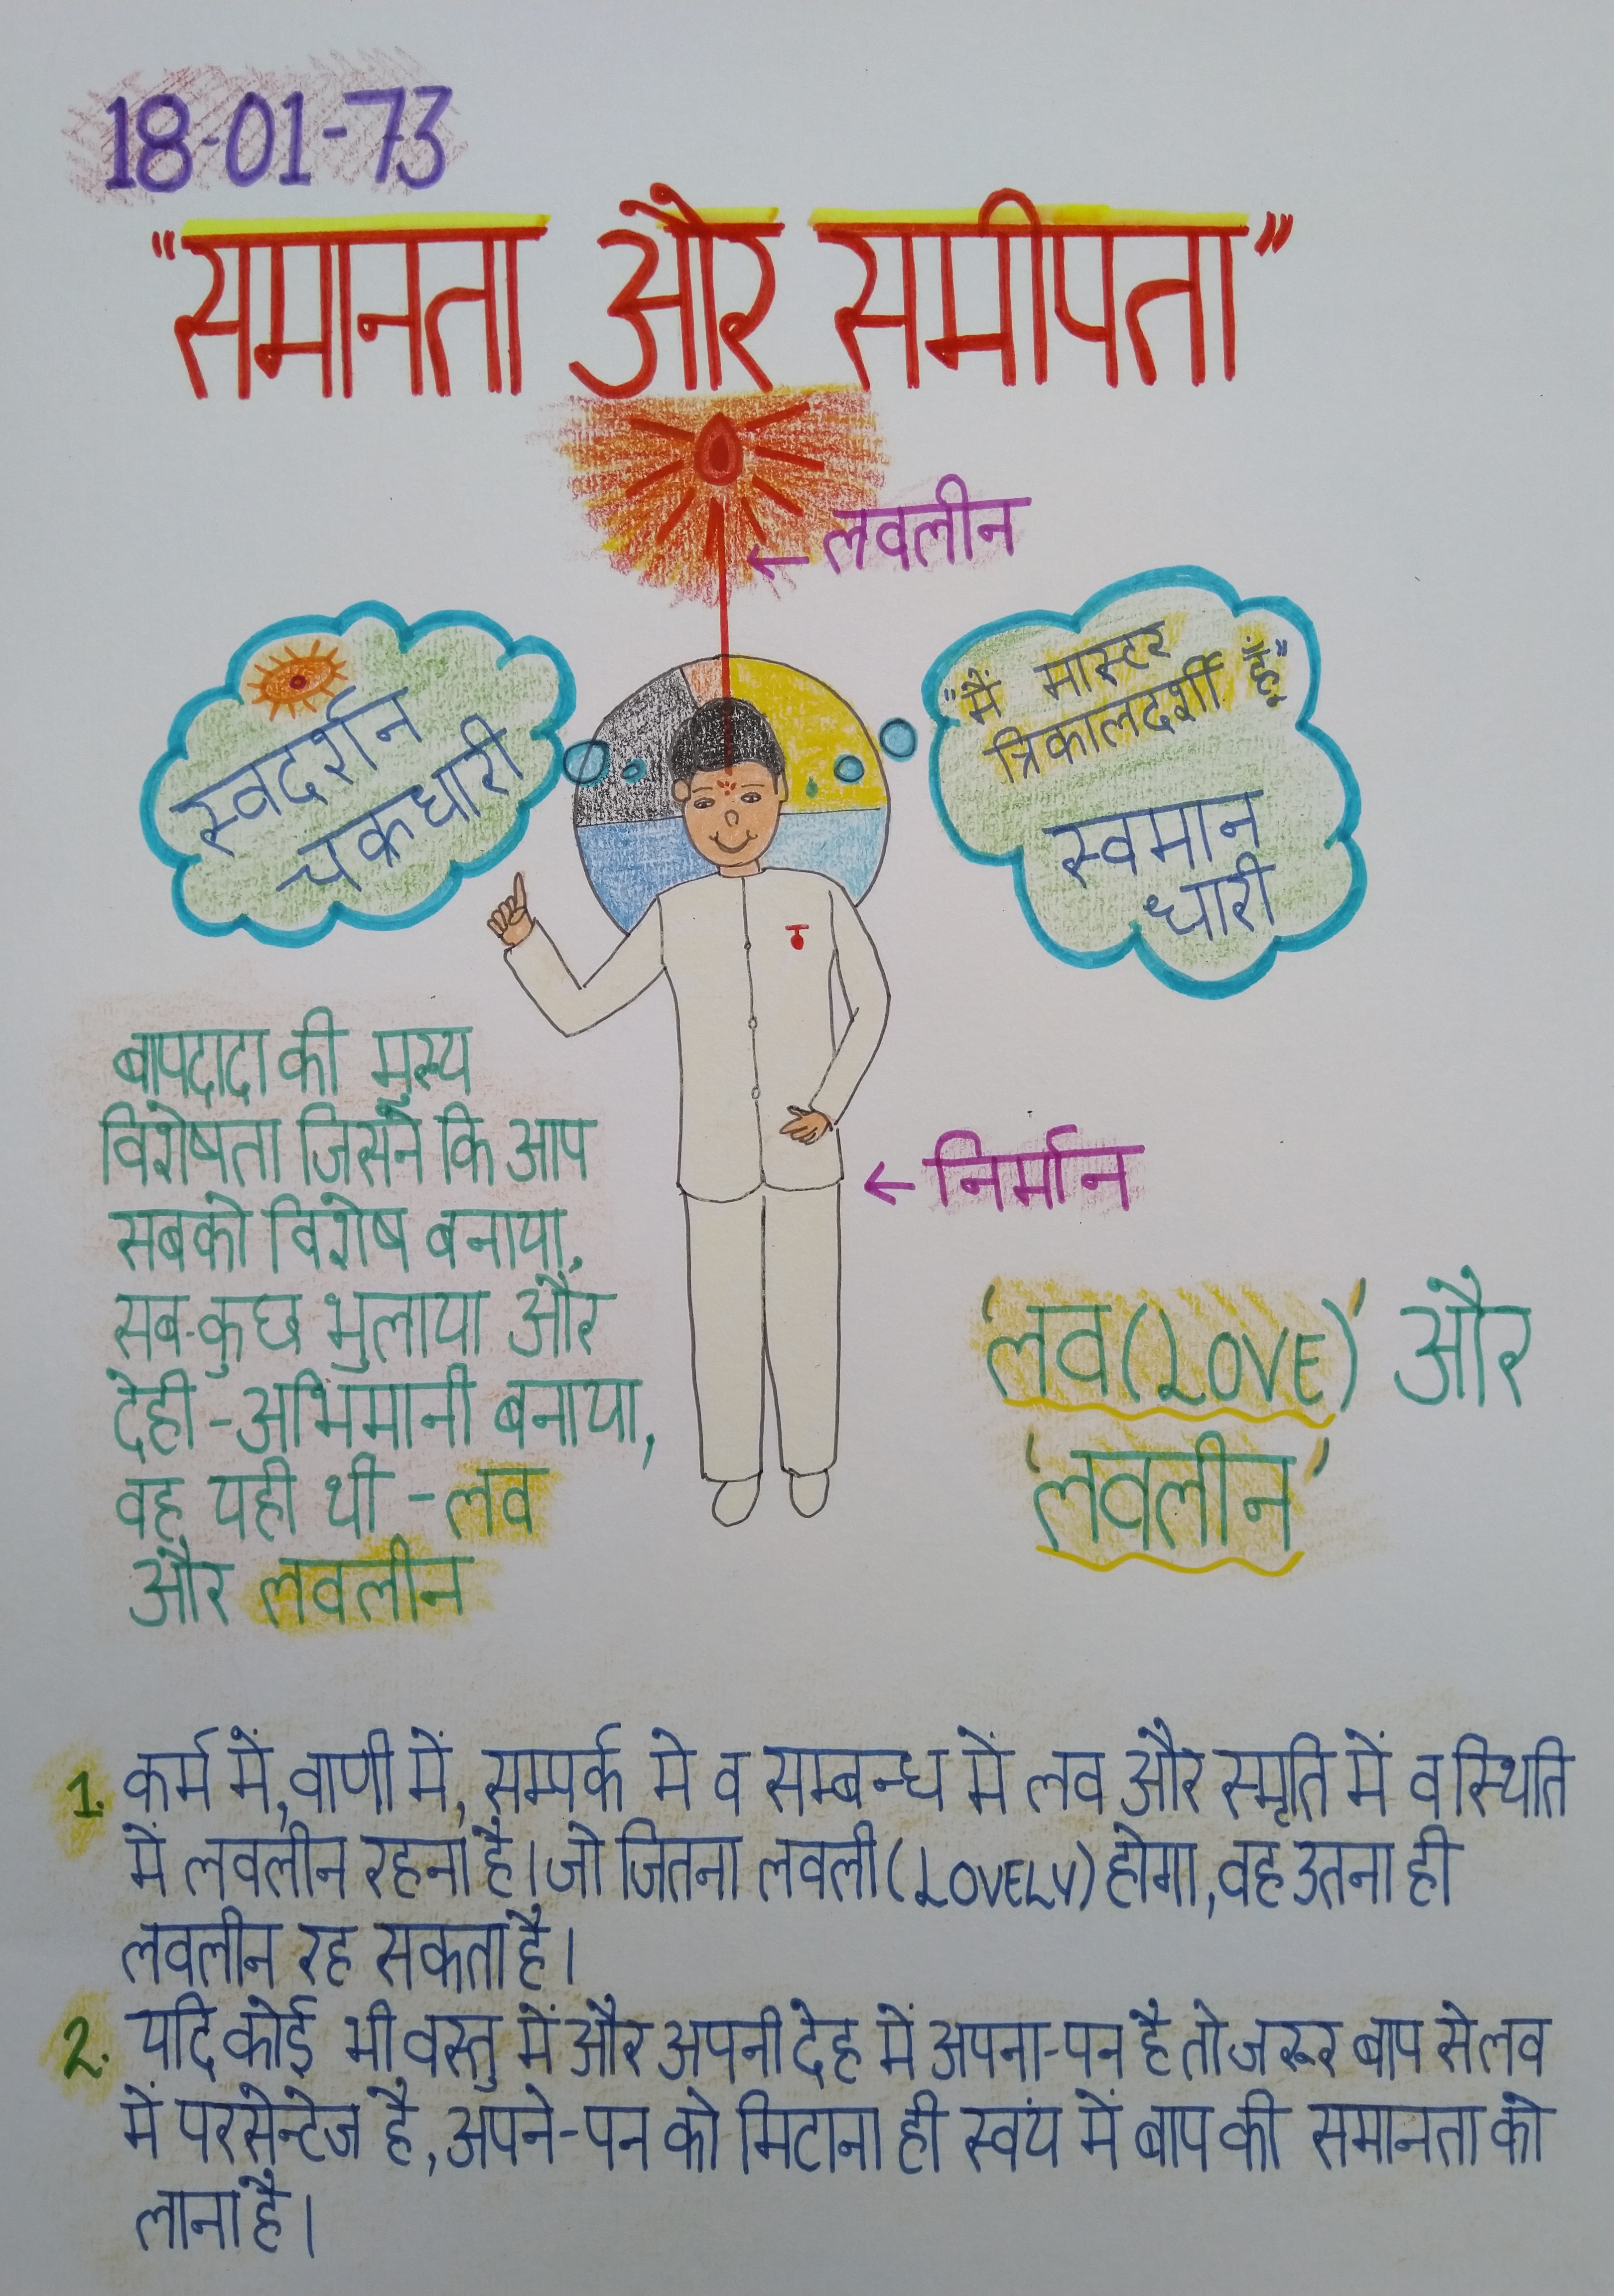 18-01-73
"समानता और समीपता"
← लवलीन
स्वदर्शन
चक्रधारी
"मैं मास्टर
त्रिकालदर्शी हूँ"
स्वमान
धारी
बापदादा की मुख्य
विशेषता जिसने कि आप
सबको विशेष बनाया,
सब-कुछ भुलाया और
देही-अभिमानी बनाया,
वह यही थी - लव
और लवलीन
← निर्मान
'लव (LOVE)' और
'लवलीन'
1. कर्म में, वाणी में, सम्पर्क मे व सम्बन्ध में लव और स्मृति में व स्थिति
में लवलीन रहना है। जो जितना लवली (LOVELY) होगा, वह उतना ही
लवलीन रह सकता है।
2. यदि कोई भी वस्तु में और अपनी देह में अपना-पन है तो जरूर बाप से लव
में परसेन्टेज है, अपने-पन को मिटाना ही स्वयं में बाप की समानता को
लाना है।